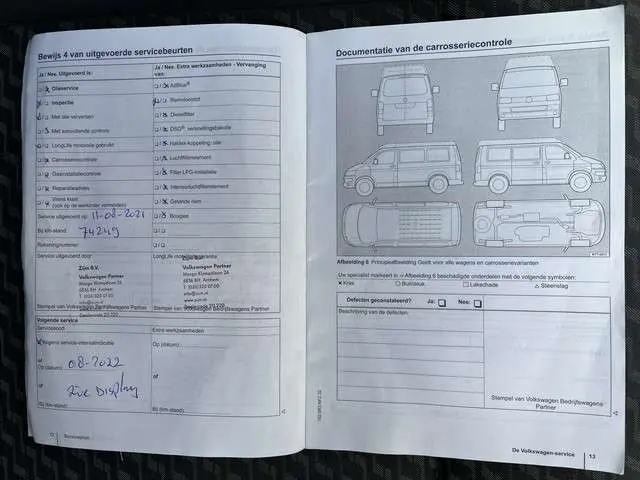 Bewijs 4 van uitgevoerde servicebeurten
Ja / Nee, Uitgevoerd is:
Olieservice
Inspectie
Met olie verversen
Met aanvullende controle
LongLife motorolie gebruikt
Carrosseriecontrole
Geaniseerde controle
Reparatieadvies
Wens klant
(ook op de werkorder vermelden)
Service uitgevoerd op: 11-08-2021
Bij km-stand: 74249
Rekeningnummer:
Service uitgevoerd door
Züm B.V.
Volkswagen Partner
Stempel van Volkswagen Bedrijfswagens Partner
Ja / Nee, Extra werkzaamheden - Vervanging
van:
AdBlue®
Remvloeistof
Dieselfilter
DSG®-versnellingsbakolie
Haldex-koppeling: olie
Luchtfilterelement
Filter LPG-installatie
Interieurluchtfilterelement
Getande riem
Bougies
LongLife mobiliteitsgarantie
Zün B.V.
Volkswagen Partner
Stempel van Volkswagen Bedrijfswagens Partner
Volgende service
Servicesoort
Volgens service-intervalindicatie
of
Op (datum): 08-2022
of
Zie Display
Bij (km-stand):
Extra werkzaamheden
Op (datum):
of
Bij (km-stand):
12
Serviceplan
Documentatie van de carrosseriecontrole
Afbeelding 6 Principeafbeelding Geldt voor alle wagens en carrosserievarianten
Uw specialist markeert in -> Afbeelding 6 beschadigde onderdelen met de volgende symbolen:
× Kras
○ Buts/deuk
□ Lakschade
△ Steenslag
Defecten geconstateerd? Ja: Nee:
Beschrijving van de defecten:
Stempel van Volkswagen Bedrijfswagens
Partner
De Volkswagen-service 13